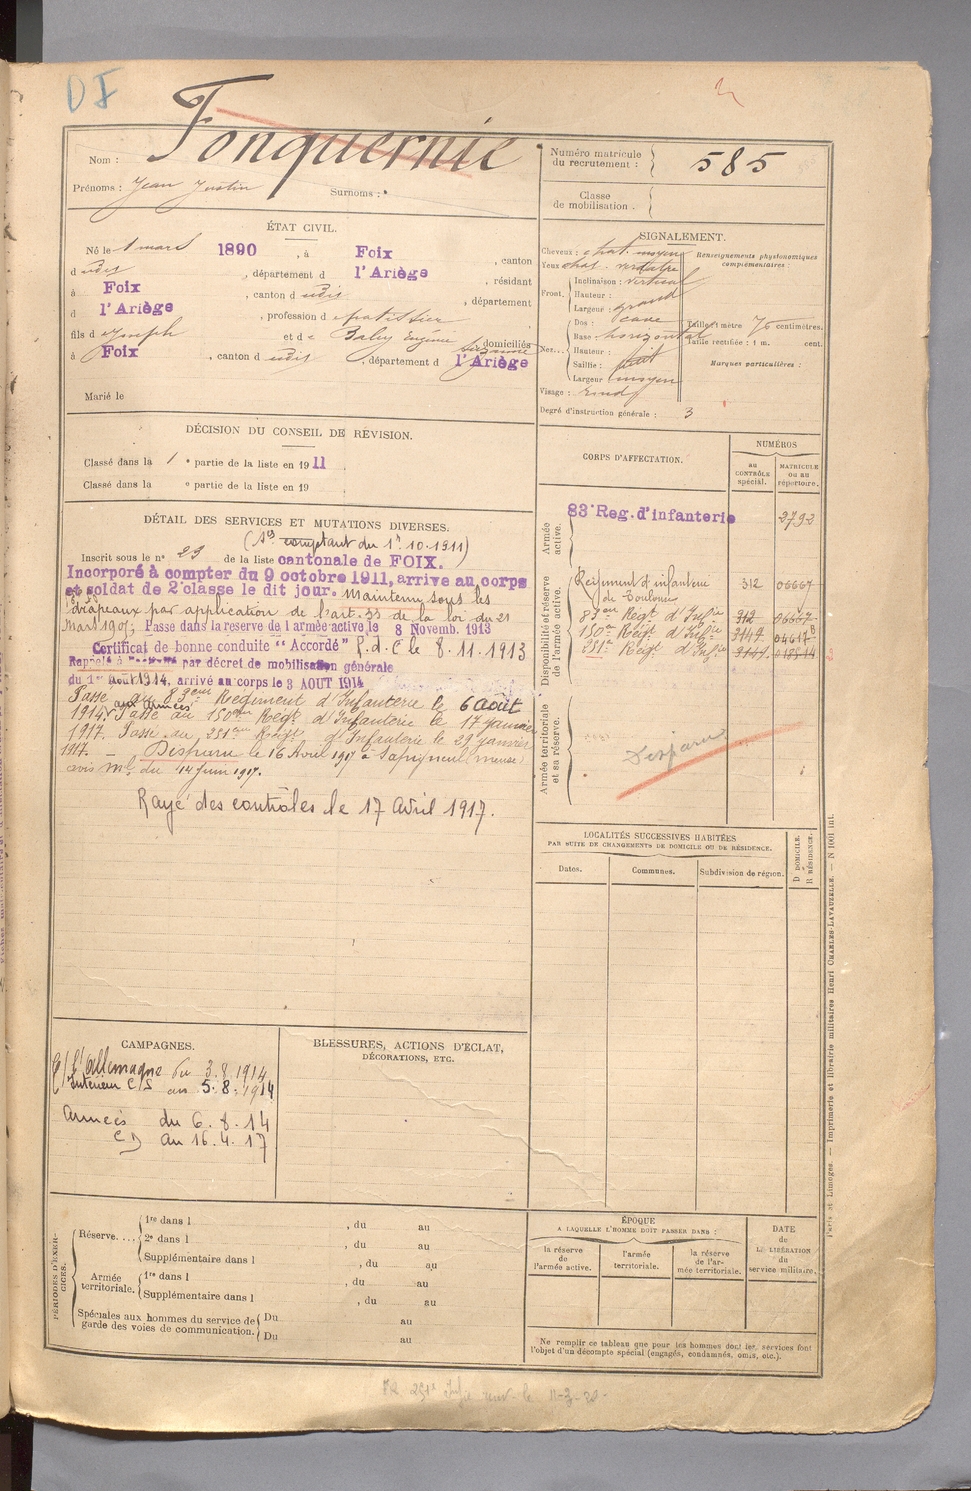 DF
Nom : Fonquernie
Prénoms : Jean Justin Surnoms :
Numéro matricule du recrutement : 585
Classe de mobilisation :
ÉTAT CIVIL.
Né le 1 mars 1890, à Foix, canton
d udis, département d l'Ariège, résidant
à Foix, canton d udis, département
d l'Ariège, profession d patissier
fils d Joseph et d Eugénie domiciliés
à Foix, canton d udis, département d l'Ariège
Marié le
SIGNALEMENT.
Cheveux : chat. moyen
Yeux chat. verdatre
Front. Inclinaison : vertical
Hauteur :
Largeur : grand
Nez... Dos : cave
Base horizontal
Hauteur :
Saillie : petit
Largeur moyen
Visage : rond
Renseignements physionomiques complémentaires :
Taille 1 mètre 76 centimètres.
Taille rectifiée : 1 m. cent.
Marques particulières :
Degré d'instruction générale : 3
DÉCISION DU CONSEIL DE RÉVISION.
Classé dans la 1e partie de la liste en 1911
Classé dans la e partie de la liste en 19
CORPS D'AFFECTATION.
NUMÉROS
au CONTRÔLE spécial.
MATRICULE ou au répertoire.
Armée active.
83e Reg. d'infanterie 2792
Disponibilité et réserve de l'armée active.
Régiment d'infanterie de Toulouse 312 06667
83eme Régt d'Infie 312 06667
150e Régt d'Infie 3149 04617
251e Régt d'Infie 3149
Armée territoriale et sa réserve.
Disparu
DÉTAIL DES SERVICES ET MUTATIONS DIVERSES.
(Son comptant du 1r. 10.1911)
Inscrit sous le n° 29 de la liste cantonale de FOIX.
Incorporé à compter du 9 octobre 1911, arrive au corps
et soldat de 2e classe le dit jour. Maintenu sous les
drapeaux par application de l'art. 33 de la loi du 21
Mars 1905; Passe dans la reserve de l'armée active le 8 Novemb. 1913
Certificat de bonne conduite "Accordé" P.d.C le 8.11.1913
Rappelé à l'activité par décret de mobilisation générale
du 1er Août 1914, arrivé au corps le 3 AOUT 1914
Passe au 83eme Régiment d'Infanterie le 6 Août
aux armées
1914. Passé au 150eme Régt d'Infanterie le 17 janvier
1917. Passe au 251eme Régt d'Infanterie le 29 janvier
1917. – Disparu le 16 Avril 1917 à Sapigneul (meuse)
avis Ml. du 14 Juin 1917.
Rayé des contrôles le 17 Avril 1917.
LOCALITÉS SUCCESSIVES HABITÉES
PAR SUITE DE CHANGEMENTS DE DOMICILE OU DE RÉSIDENCE.
Dates. Communes. Subdivision de région. D DOMICILE. R RÉSIDENCE.
CAMPAGNES.
C/ l'allemagne du 3.8.1914
Intérieur C/S au 5.8.1914
Armées du 6.8.14
CD au 16.4.17
BLESSURES, ACTIONS D'ÉCLAT,
DÉCORATIONS, ETC.
PÉRIODES D'EXERCICES.
Réserve.... 1re dans l , du au
2e dans l , du au
Supplémentaire dans l , du au
Armée territoriale. 1re dans l , du au
Supplémentaire dans l , du au
Spéciales aux hommes du service de garde des voies de communication. Du au
Du au
ÉPOQUE
A LAQUELLE L'HOMME DOIT PASSER DANS :
la réserve de l'armée active.
l'armée territoriale.
la réserve de l'armée territoriale.
DATE de LA LIBÉRATION du service militaire.
Ne remplir ce tableau que pour les hommes dont les services font
l'objet d'un décompte spécial (engagés, condamnés, omis, etc.).
Paris et Limoges. — Imprimerie et librairie militaires Henri CHARLES-LAVAUZELLE. — N 1001 int.